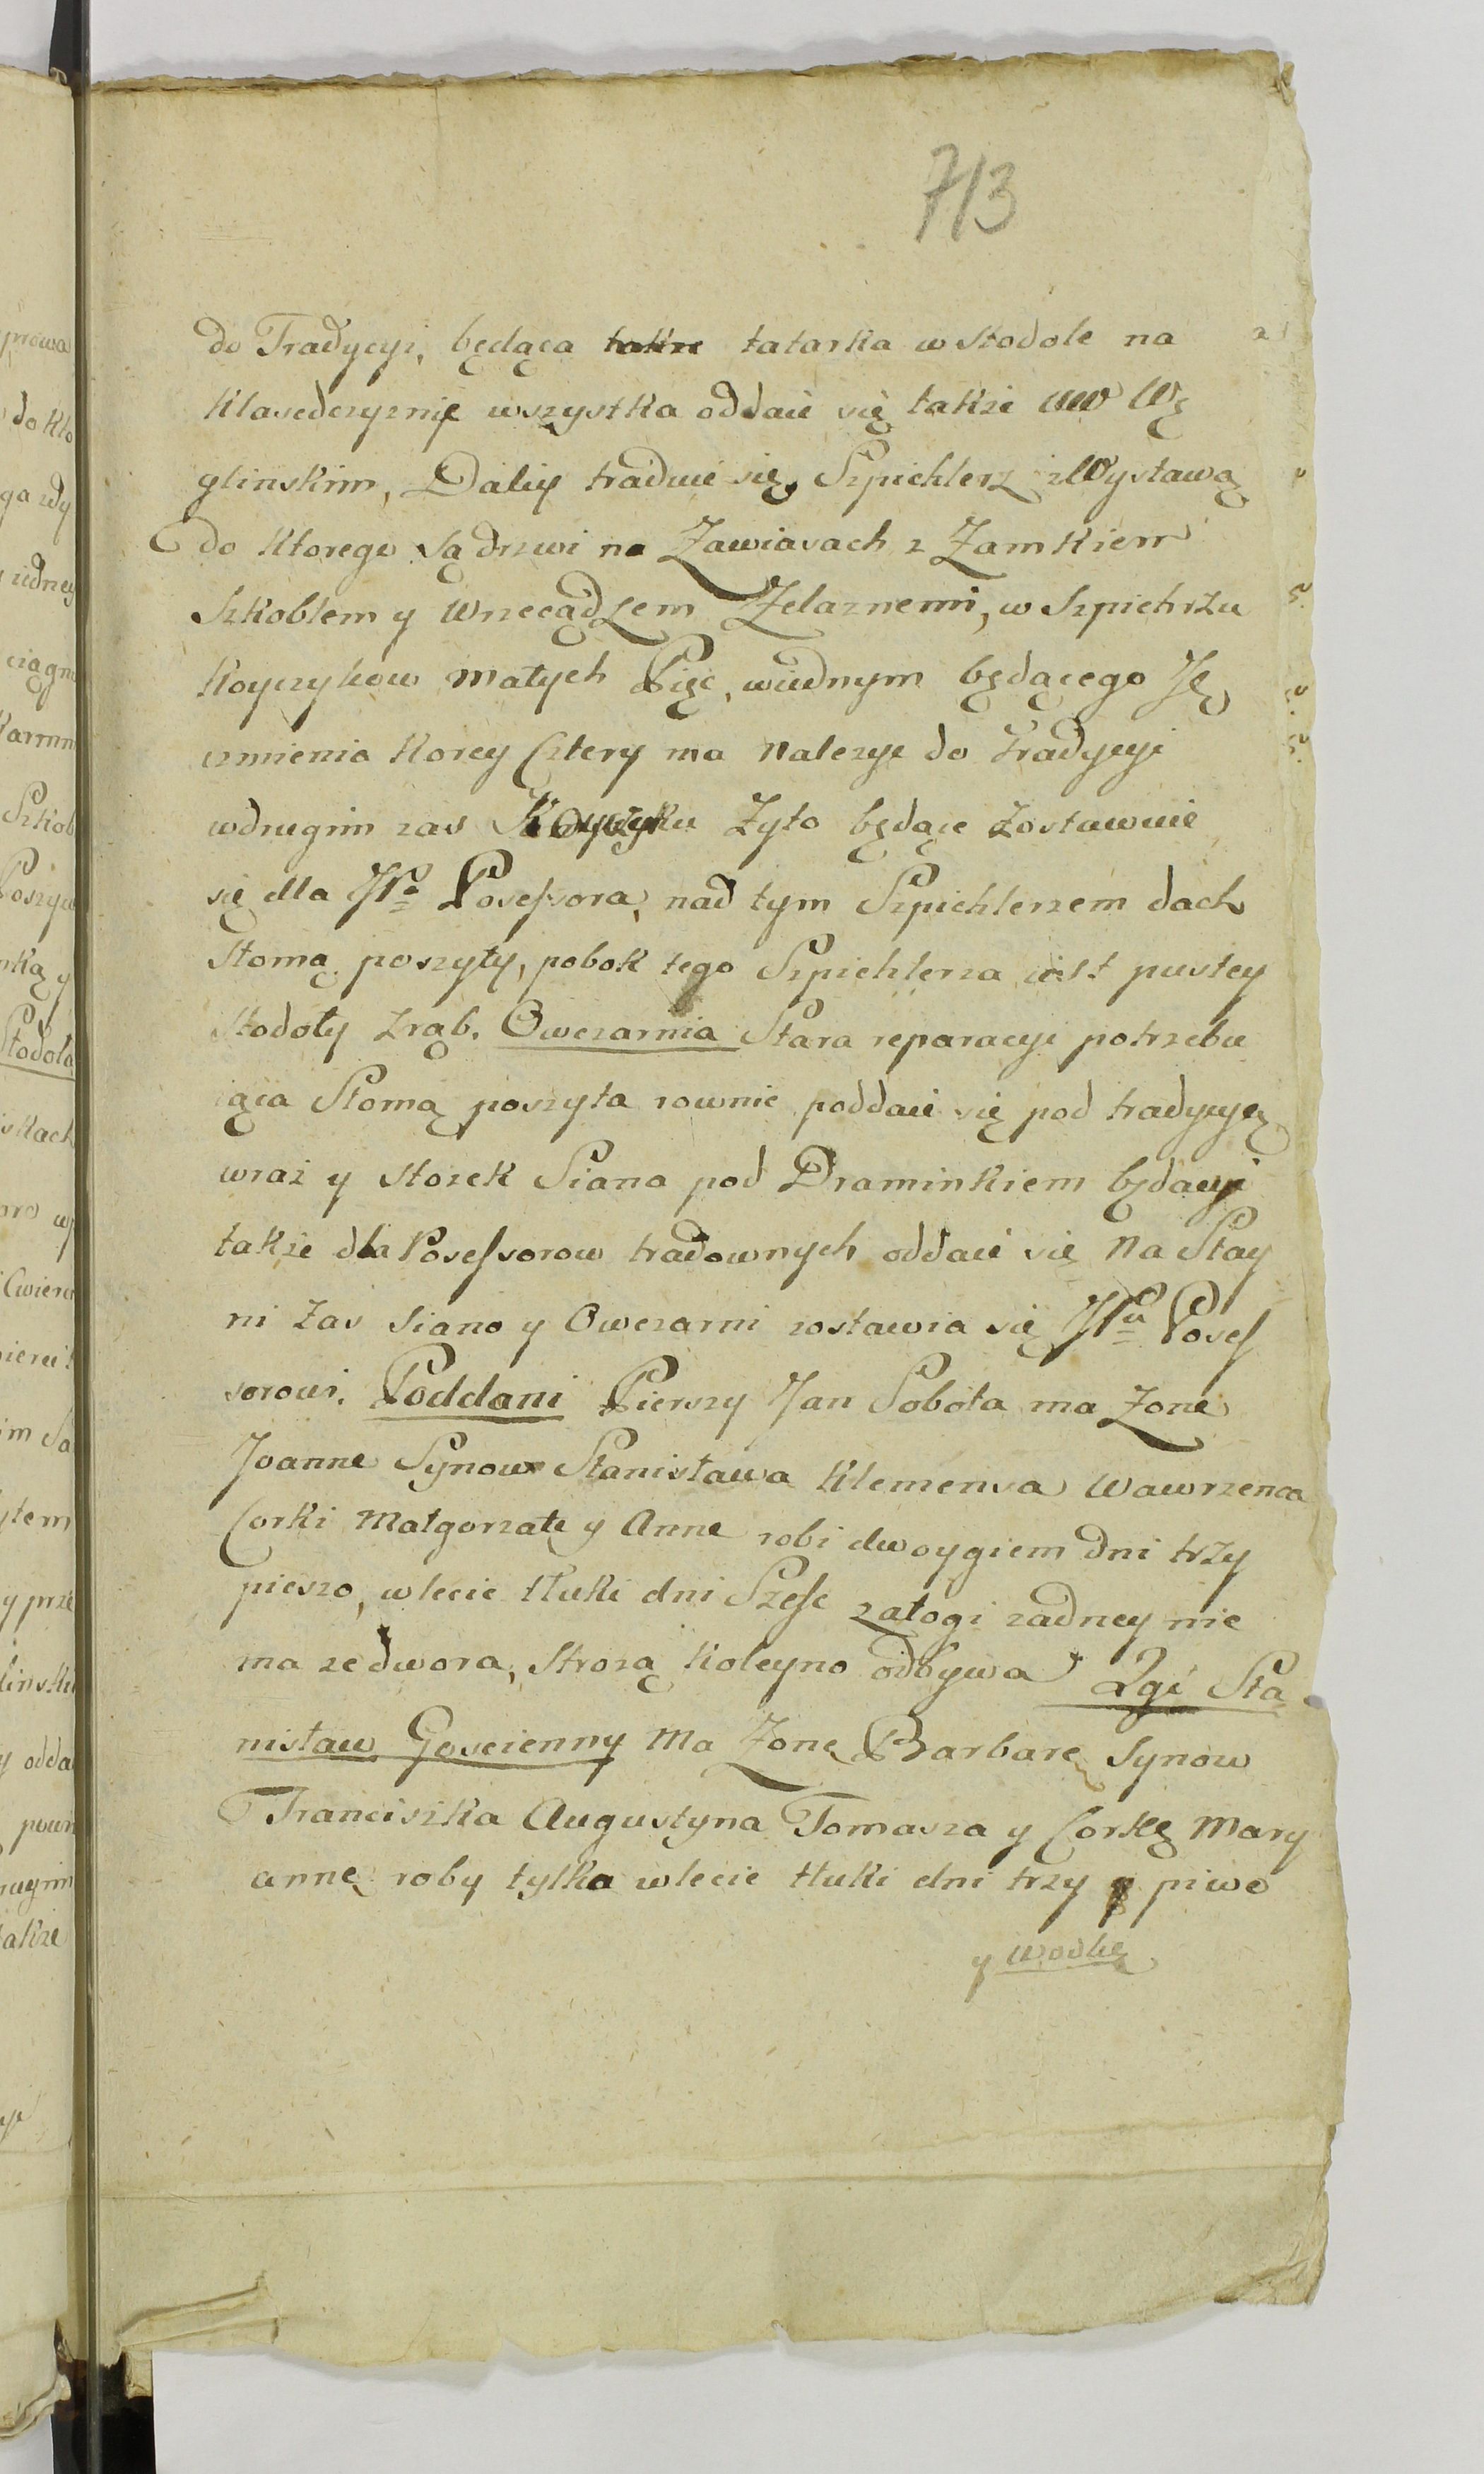 713
do Tradycyi, będąca takze tatarka w stodole na
klasedczyznie wszystka oddaie się takze WW Wę
glinskim, Daliy traduie się, Szpichlerz z Wystawą
do ktorego są drzwi na Zawiasach z Zamkiem
Szkoblem y Wrzecądzem Żelaznemi, w Szpichrzu
Koyczykow małych Pięc, wiednym będącego Ję
czmienia Korcy Cztery ma nalezyc do tradycyi
wdrugim zas Koyczyku Zyto będące zostawuie
się dla JPa Posessora, nad tym Szpichlerzem dach
Słomą poszyty, pobok tego Szpichlerza iest pustey
stodoły zrąb. Owczarnia Stara reparacyi potrzebu
iąca Słomą poszyta rownie poddaie się pod tradycyę
wraz y stozek Siana pod Draminkiem będący
takze dla Posessorow tradownych oddaie się Na Stay
ni zas siano y Owczarni zostawia się JPu Poses
sorowi. Poddani Pierszy Jan Sobota ma Zone
Joanne Synow Stanisława Klemensa Wawrzenca
Corki Małgorzate y Anne robi dwoygiem dni trzy
pieszo, wlecie tłuki dni Szesc załogi zadney nie
ma ze dwora, strozą koleyno odbywa 2gi Sta
nisław Goscienny Ma Zonę Barbarę Synow
Franciszka Augustyna Tomasza y Corkę Mary
annę roby tylko wlecie tłuki dni trzy piwo
y wodkę